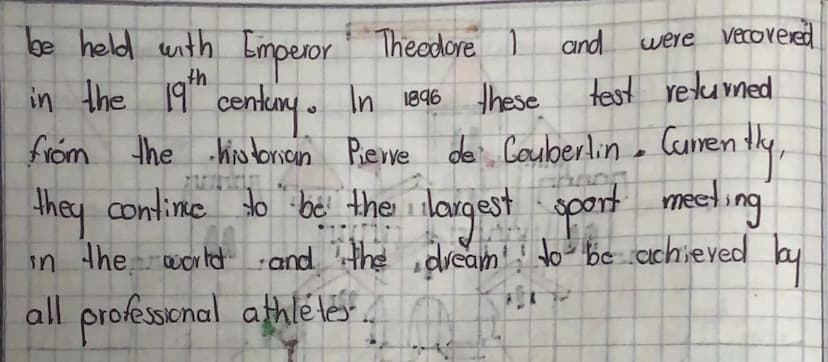 be held with Emperor Theodore I and were recovered
in the 19th century. In 1896 these test returned
from the historian Pierre de Couberlin. Currently,
they continue to be the largest sport meeting
in the world and the dream to be achieved by
all professional athletes.